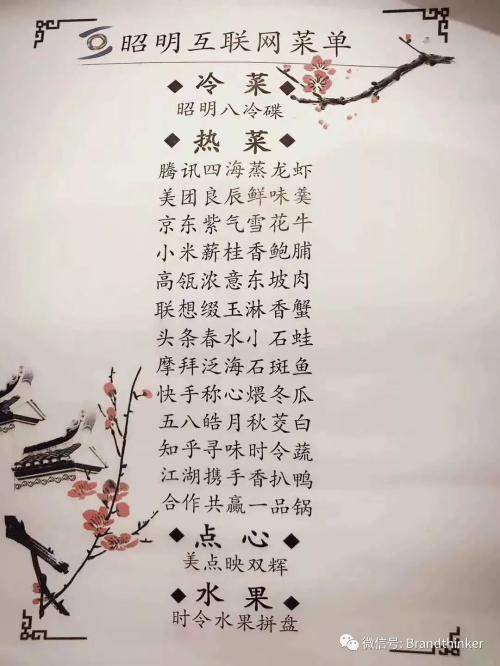 昭明互联网菜单
◆ 冷菜 ◆
昭明八冷碟
◆ 热菜 ◆
腾讯四海蒸龙虾
美团良辰鲜味羹
京东紫气雪花牛
小米薪桂香鲍脯
高瓴浓意东坡肉
联想缀玉淋香蟹
头条春水小石蛙
摩拜泛海石斑鱼
快手称心煨冬瓜
五八皓月秋茭白
知乎寻味时令蔬
江湖携手香扒鸭
合作共赢一品锅
◆ 点心 ◆
美点映双辉
◆ 水果 ◆
时令水果拼盘
微信号: Brandthinker